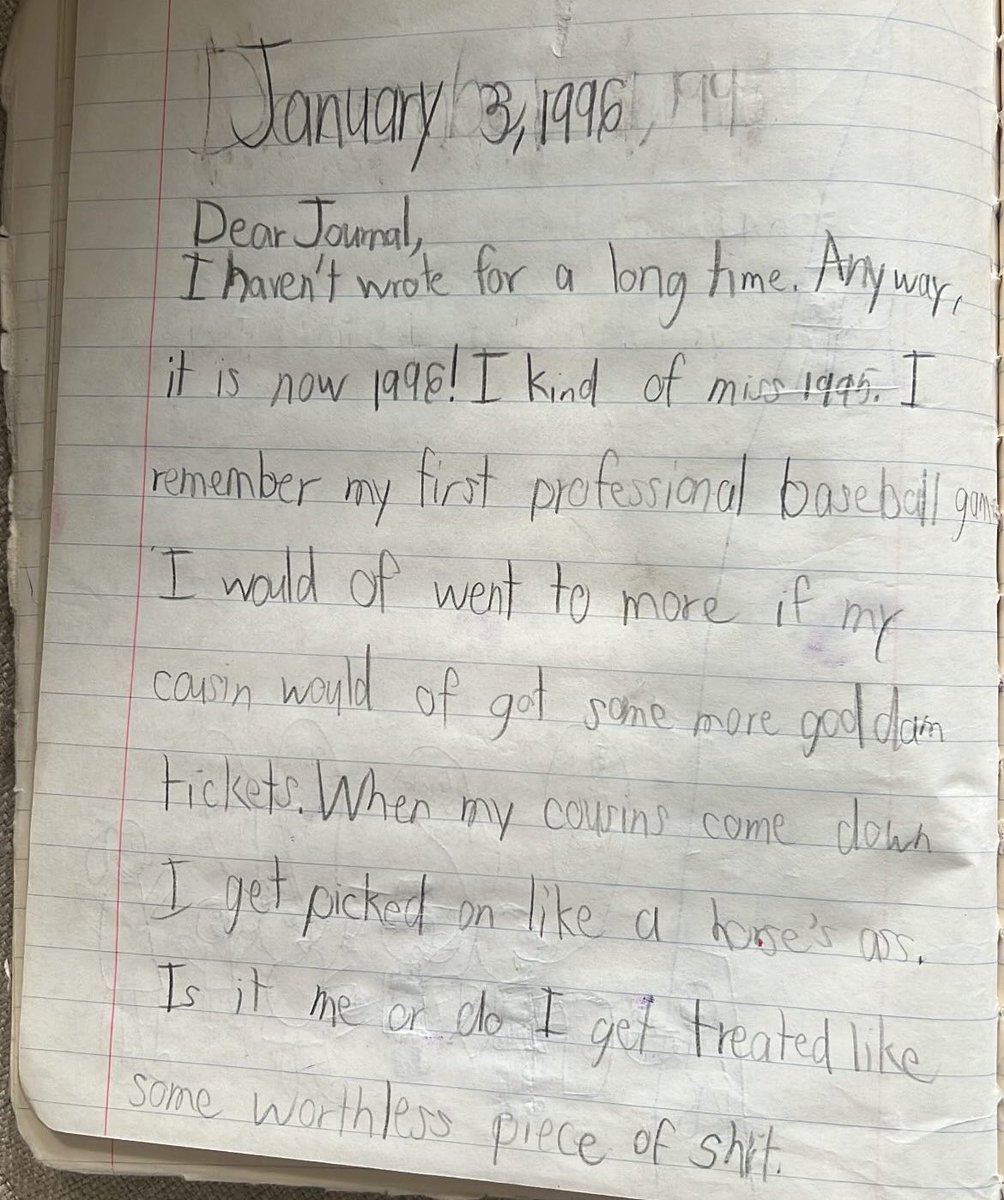 January 3, 1996
Dear Journal,
I haven't wrote for a long time. Any way,
it is now 1996! I kind of miss 1995. I
remember my first professional baseball game
I would of went to more if my
cousin would of got some more god dam
tickets. When my cousins come down
I get picked on like a horse's ass.
Is it me or do I get treated like
some worthless piece of shit.